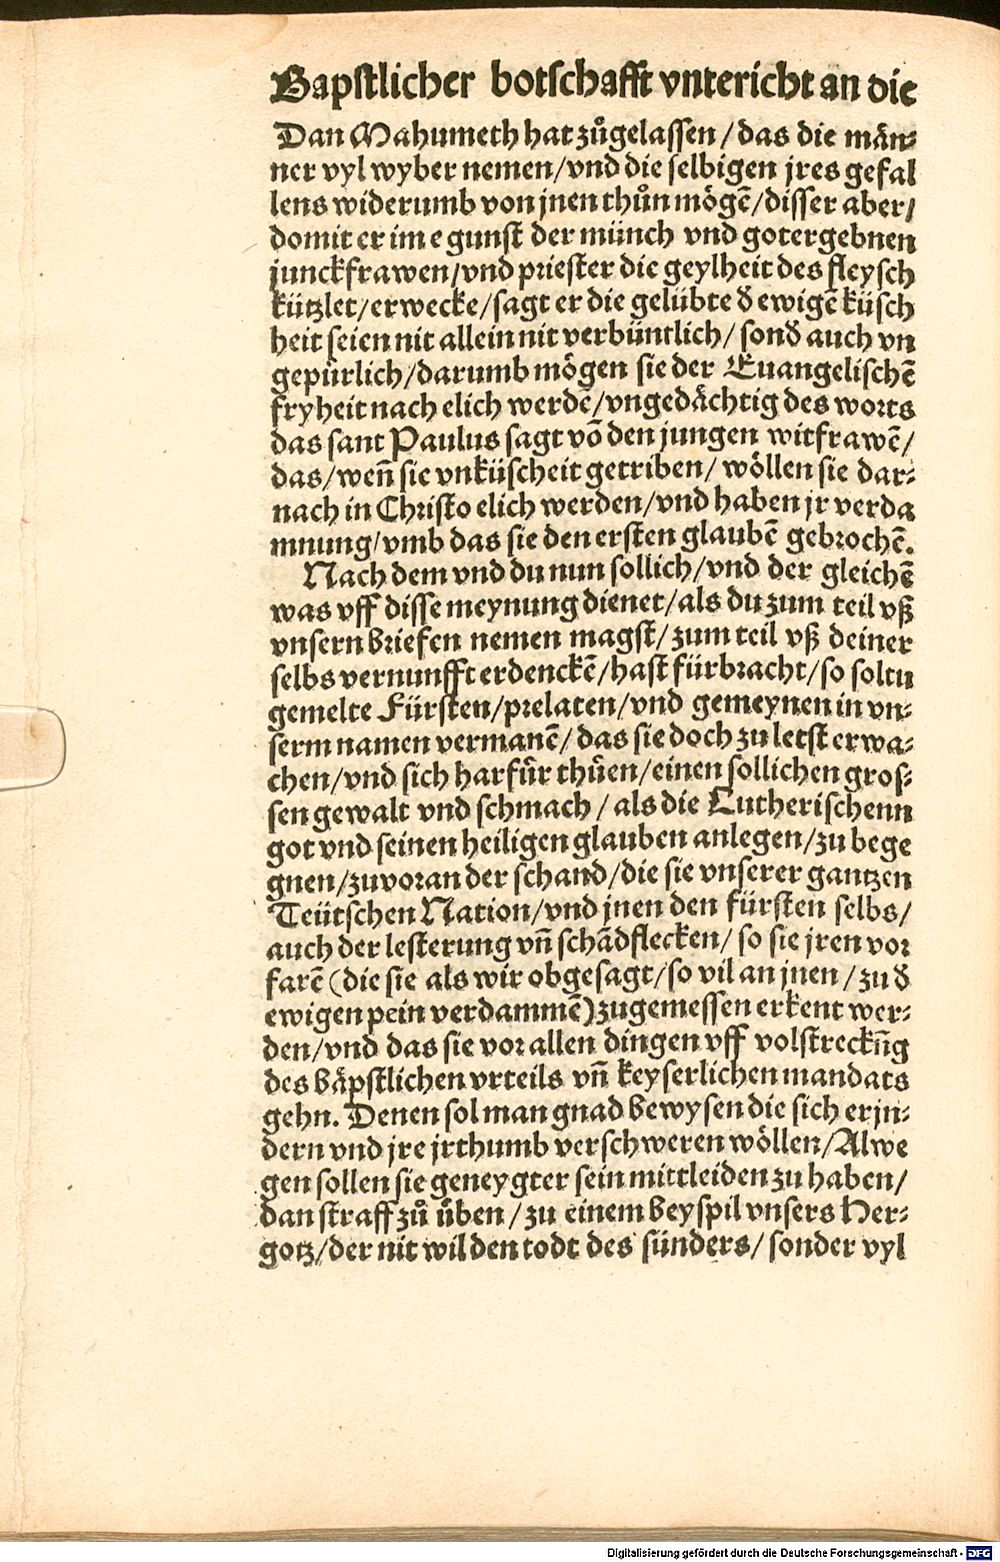 Bapstlicher botschafft vntericht an die
Dan Mahumeth hat zůgelassen/das die män⸗
ner vyl wyber nemen/vnd die selbigen jres gefal
lens widerumb von jnen thůn mögē/disser aber/
domit er im e gunst der münch vnd gotergebnen
junckfrawen/vnd priester die geylheit des fleysch
kützlet/erwecke/sagt er die gelübte ð ewigē küsch
heit seien nit allein nit verbüntlich/ sonð auch vn
gepürlich/darumb mögen sie der Euangelischē
fryheit nach elich werdē/vngedächtig des worts
das sant Paulus sagt vō den jungen witfrawē/
das/wen̄ sie vnküscheit getriben/ wöllen sie dar⸗
nach in Christo elich werden/vnd haben jr verda
mnung/vmb das sie den ersten glaubē gebrochē.
Nach dem vnd du nun sollich/vnd der gleichē
was vff disse meynung dienet/als du zum teil vß
vnsern briefen nemen magst/zum teil vß deiner
selbs vernunfft erdenckē/hast fürbracht/so soltu
gemelte Fürsten/prelaten/vnd gemeynen in vn⸗
serm namen vermanē/das sie doch zu letst erwa⸗
chen/vnd sich harfür thüen/einen sollichen gros⸗
sen gewalt vnd schmach/als die Lutherischenn
got vnd seinen heiligen glauben anlegen/zu bege
gnen/zuvoran der schand/die sie vnserer gantzen
Teütschen Nation/vnd jnen den fürsten selbs/
auch der lesterung vn̄ schādflecken/ so sie jren vor
farē (die sie als wir obgesagt/so vil an jnen/zu ð
ewigen pein verdammē) zugemessen erkent wer⸗
den/vnd das sie vor allen dingen vff volstreckūg
des bäpstlichen vrteils vn̄ keyserlichen mandats
gehn. Denen sol man gnad bewysen die sich erjn⸗
dern vnd jre jrthumb verschweren wöllen/Alwe
gen sollen sie geneygter sein mittleiden zu haben/
dan straff zů üben/zu einem beyspil vnsers Her⸗
gotz/der nit wil den todt des sünders/ sonder vyl
Digitalisierung gefördert durch die Deutsche Forschungsgemeinschaft - DFG